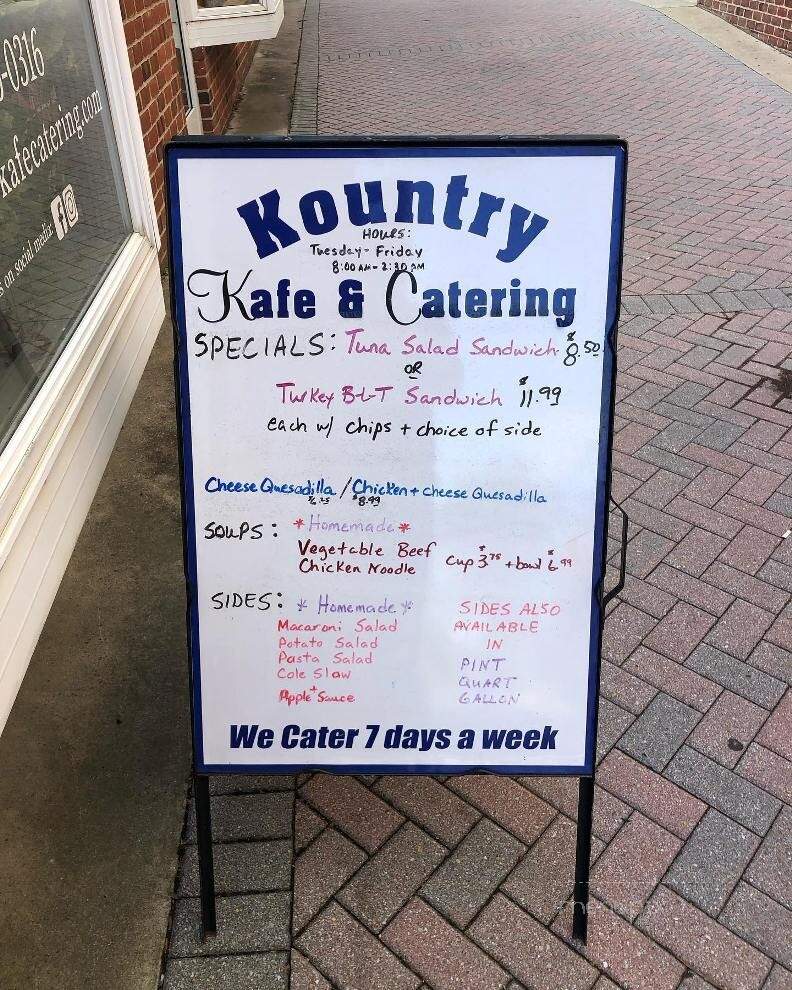 -0316
kafecatering.com
on social media:
Kountry
HOURS:
Tuesday - Friday
8:00 AM - 2:30 PM
Kafe & Catering
SPECIALS: Tuna Salad Sandwich $8.50
OR
Turkey B-L-T Sandwich $11.99
each w/ chips + choice of side
Cheese Quesadilla / Chicken + cheese Quesadilla
$8.99
SOUPS: *Homemade*
Vegetable Beef
Chicken Noodle
Cup $3.75 + bowl $6.99
SIDES: * Homemade *
Macaroni Salad
Potato Salad
Pasta Salad
Cole Slaw
Apple Sauce
SIDES ALSO
AVAILABLE
IN
PINT
QUART
GALLON
We Cater 7 days a week